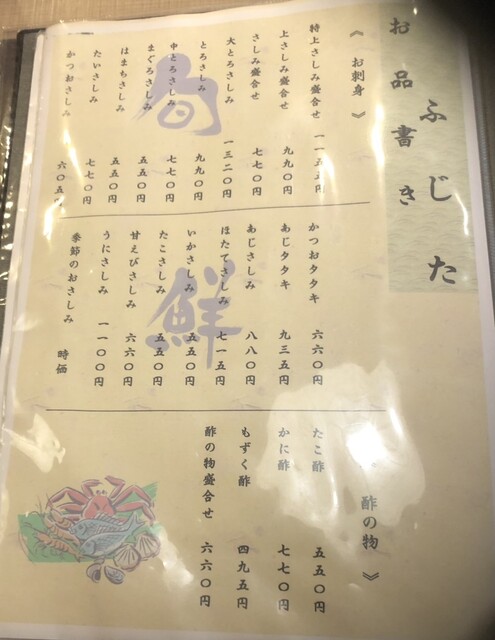 ふじた
お品書き
《お刺身》
特上さしみ盛合せ 一一五五円
上さしみ盛合せ 九九〇円
さしみ盛合せ 七七〇円
大とろさしみ 一三二〇円
とろさしみ 九九〇円
中とろさしみ 七七〇円
まぐろさしみ 五五〇円
はまちさしみ 五五〇円
たいさしみ 七七〇円
かつおさしみ 六〇五円
旬
かつおタタキ 六六〇円
あじタタキ 九三五円
あじさしみ 八八〇円
ほたてさしみ 七一五円
いかさしみ 五五〇円
たこさしみ 五五〇円
甘えびさしみ 六六〇円
うにさしみ 一一〇〇円
季節のおさしみ 時価
鮮
酢の物》
たこ酢 五五〇円
かに酢 七七〇円
もずく酢 四九五円
酢の物盛合せ 六六〇円